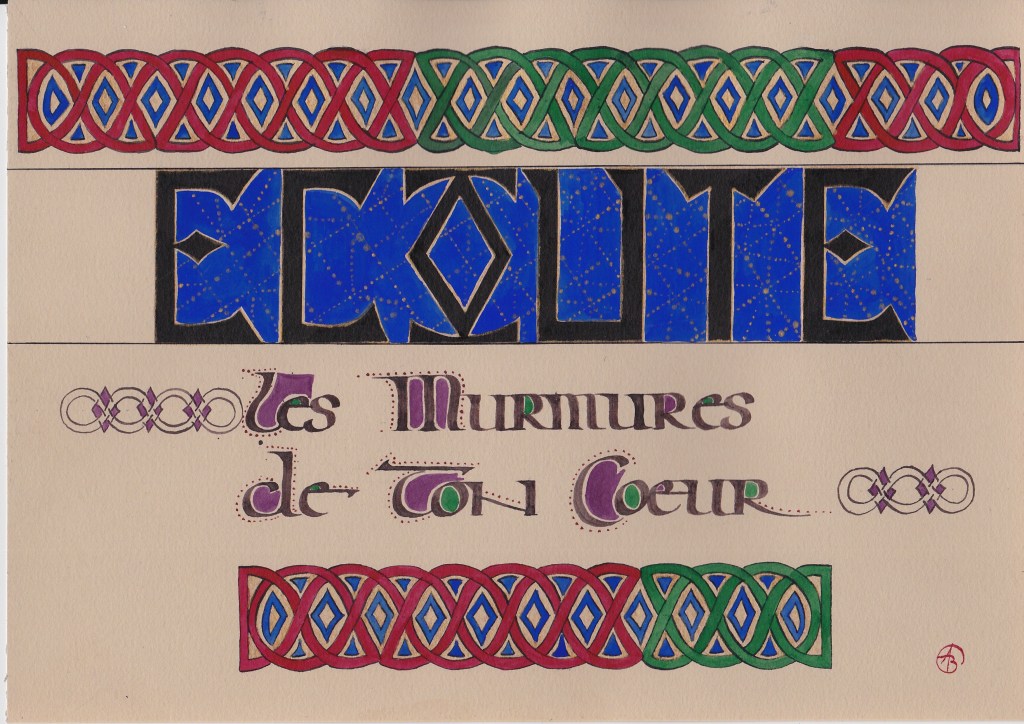 ECOUTE
Les Murmures
de Ton Coeur
AB